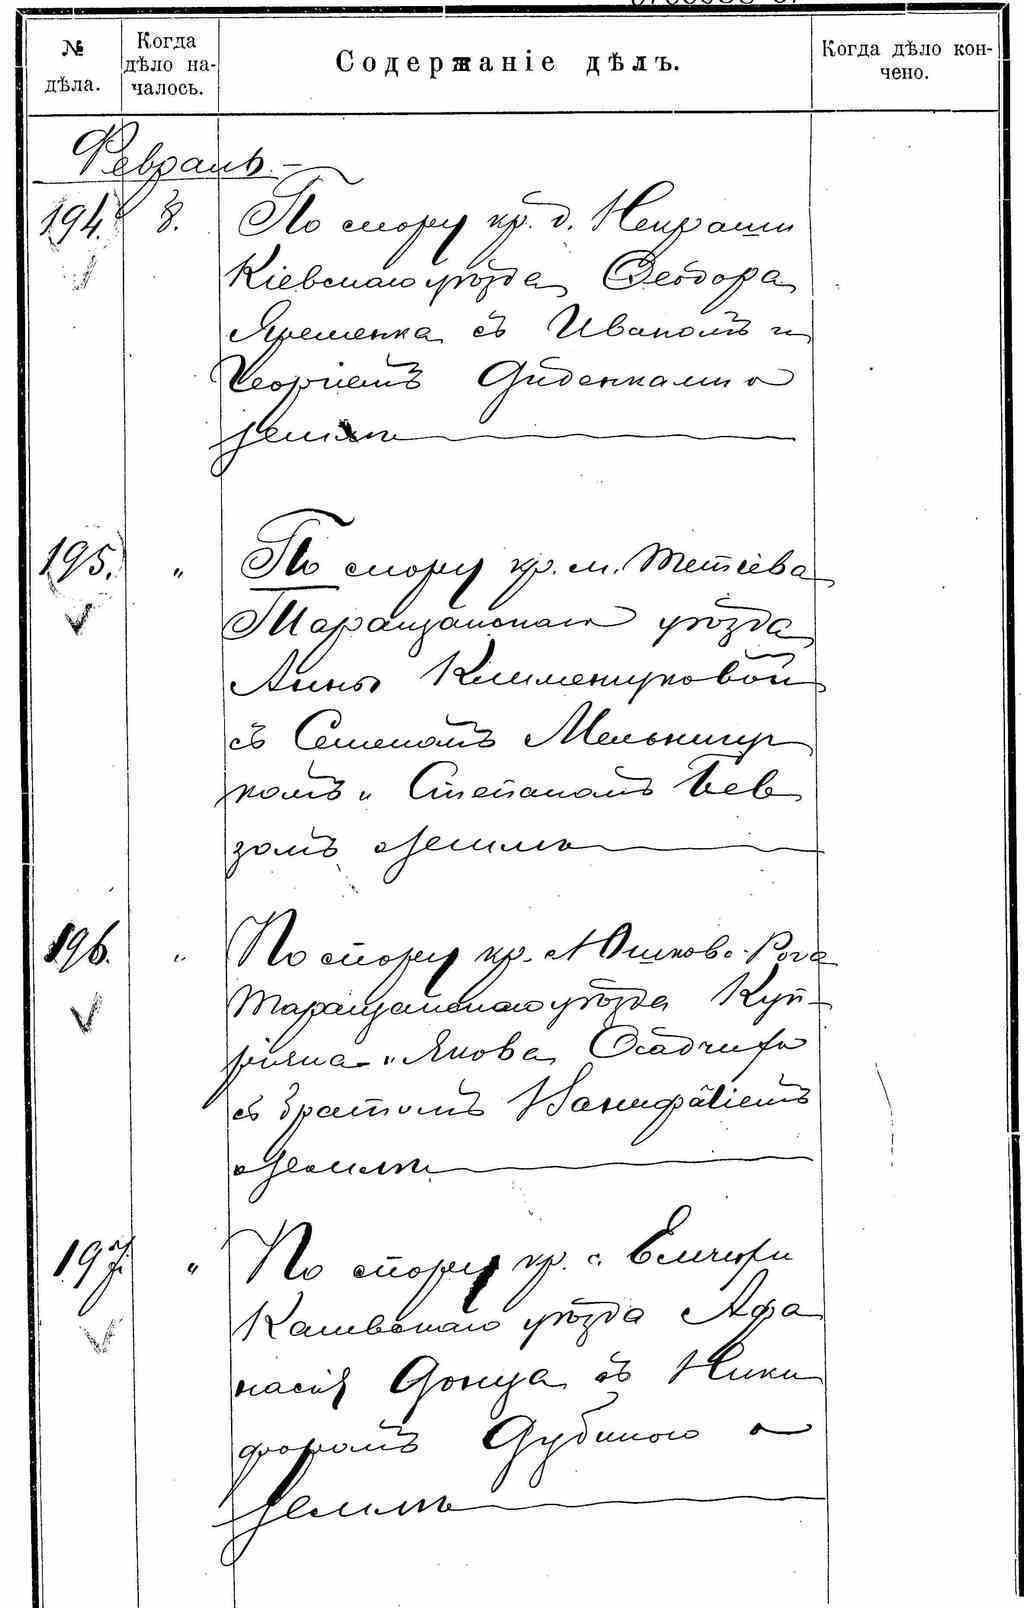 № дѣла.
Когда дѣло на-
чалось.
Содержаніе дѣлъ.
Когда дѣло кон-
чено.
Февраль.
194. 8. По спору кр. д. Некраши
Кіевскаго уѣзда Ѳеодора
Яременка съ Иваномъ и
Георгіемъ Диденками о
землѣ
195. " По спору кр. м. Тетіева
Таращанскаго уѣзда
Анны Клименчуковой
съ Семеномъ Мельничу
комъ и Степаномъ Бев
зомъ о землѣ
196. " По спору кр. с. Юшково-Рога
Таращанскаго уѣзда Куп-
ріяна и Якова Осадчихъ
съ братомъ Ванифатіемъ
о землѣ
197. " По спору кр. с. Емчихи
Каневскаго уѣзда Афа
насія Донца съ Ники
форомъ Дубиною о
землѣ